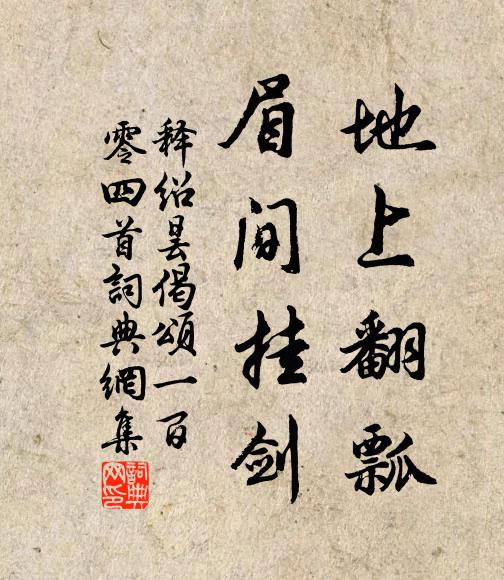 地上翻瓢
眉间挂剑
释绍昙偈颂一百
零四首詞典網集
詞典
网印